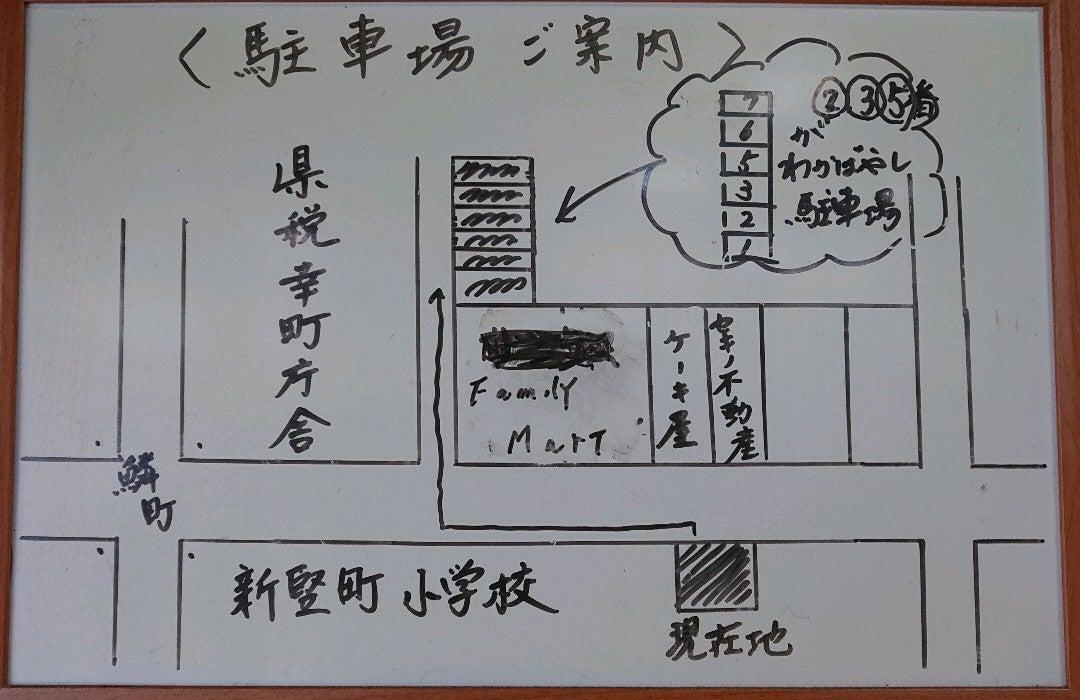 〈駐車場ご案内〉
②③⑤番
が
わかばやし
駐車場
7
6
5
3
2
1
県税幸町庁舎
Family
Mart
ケーキ屋
セキノ不動産
鱗町
新竪町小学校
現在地